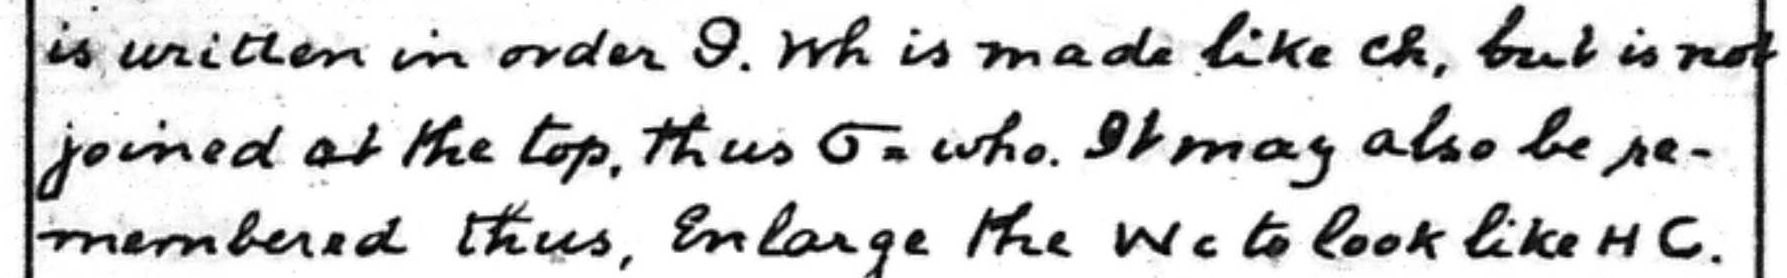 is written in order 9. Wh is made like ch, but is not
joined at the top, thus = who. It may also be re-
membered thus, Enlarge the W c to look like H C.